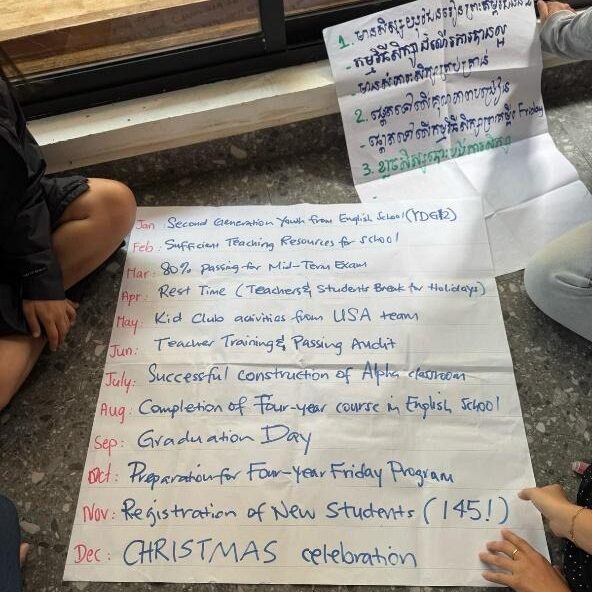 1. មានសិស្ស
- កម្មវិធីសិក្សាដំណើរការបានល្អ
- មានសំភារៈសិក្សាគ្រប់គ្រាន់
2. ផ្តោតទៅលើគុណភាពបង្រៀន
- ផ្តោតទៅលើកម្មវិធីសិក្សាព្រះគម្ពីរ Friday
3.
Jan : Second Generation Youth from English School (YDG#2)
Feb : Sufficient Teaching Resources for School
Mar : 80% passing for Mid-Term Exam
Apr : Rest Time (Teachers & Students Break for Holidays)
May : Kid Club activities from USA team
Jun : Teacher Training & Passing Audit
July : Successful construction of Alpha classroom
Aug : Completion of Four-year course in English School
Sep : Graduation Day
Oct : Preparation for Four-Year Friday Program
Nov : Registration of New Students (145!)
Dec : CHRISTMAS celebration